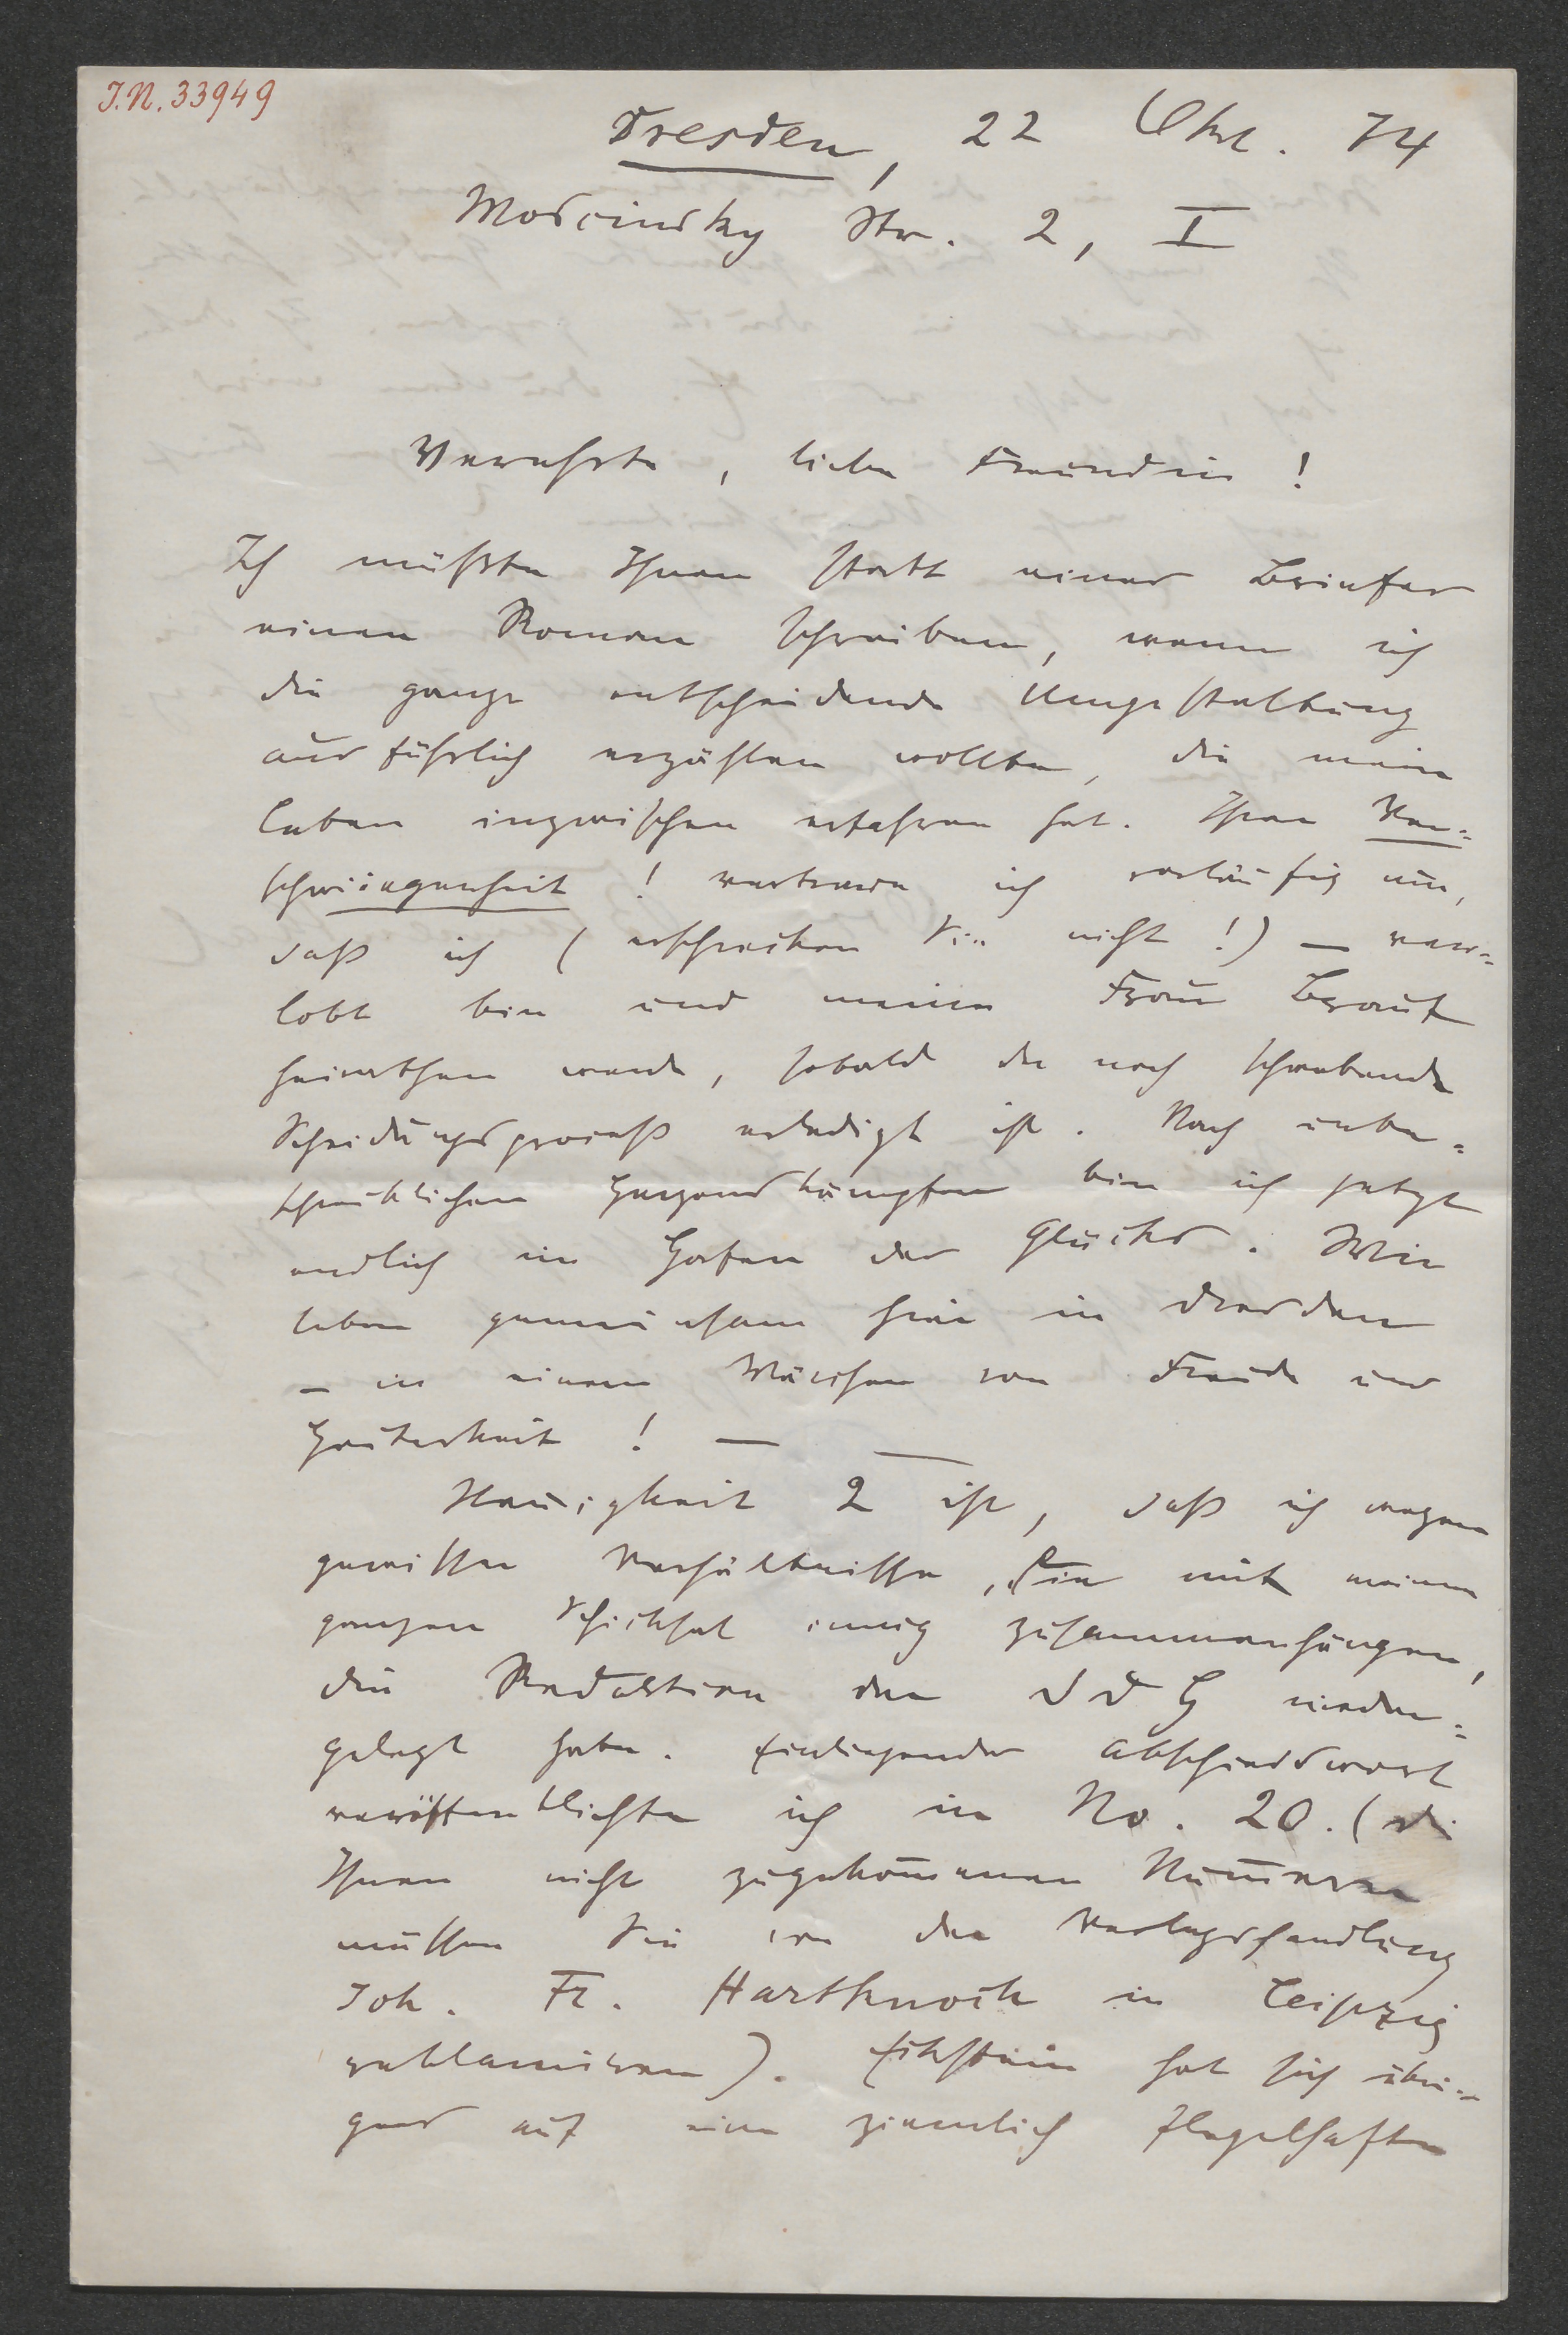 I.N. 33949
Dresden, 22 Okt. 74
Moscinsky Str. 2, I
Verehrte, liebe Freundin!
Ich müßte Ihnen statt eines Briefes
einen Roman schreiben, wenn ich
die ganze entscheidende Umgestaltung
ausführlich erzählen wollte, die mein
Leben inzwischen erfahren hat. Ihrer Ver=
schwiegenheit! vertraue ich vorläufig nur,
daß ich (erschrecken Sie nicht!) — ver=
lobt bin und meine Frau Braut
heirathen werde, sobald der noch schwebende
Scheidungsproceß erledigt ist. Nach unbe=
schreiblichen Herzenskämpfen bin ich jetzt
endlich im Hafen des Glücks. Wir
leben gemeinsam hier in Dresden
— in einem Märchen von Freude und
Heiterkeit! — —
Neuigkeit 2 ist, daß ich wegen
gewisser Verhältnisse, die mit meinem
ganzen Schicksal innig zusammenhängen,
die Redaktion der D D H nieder=
gelegt habe. Einliegendes Abschiedswort
veröffentlichte ich in No. 20. (die
Ihnen nicht zugekommenen Nummern
müssen Sie von der Verlagshandlung
Joh. Fr. Hartknoch in Leipzig
reklamiren). Eckstein hat sich übri=
gens auf eine ziemlich flegelhafte